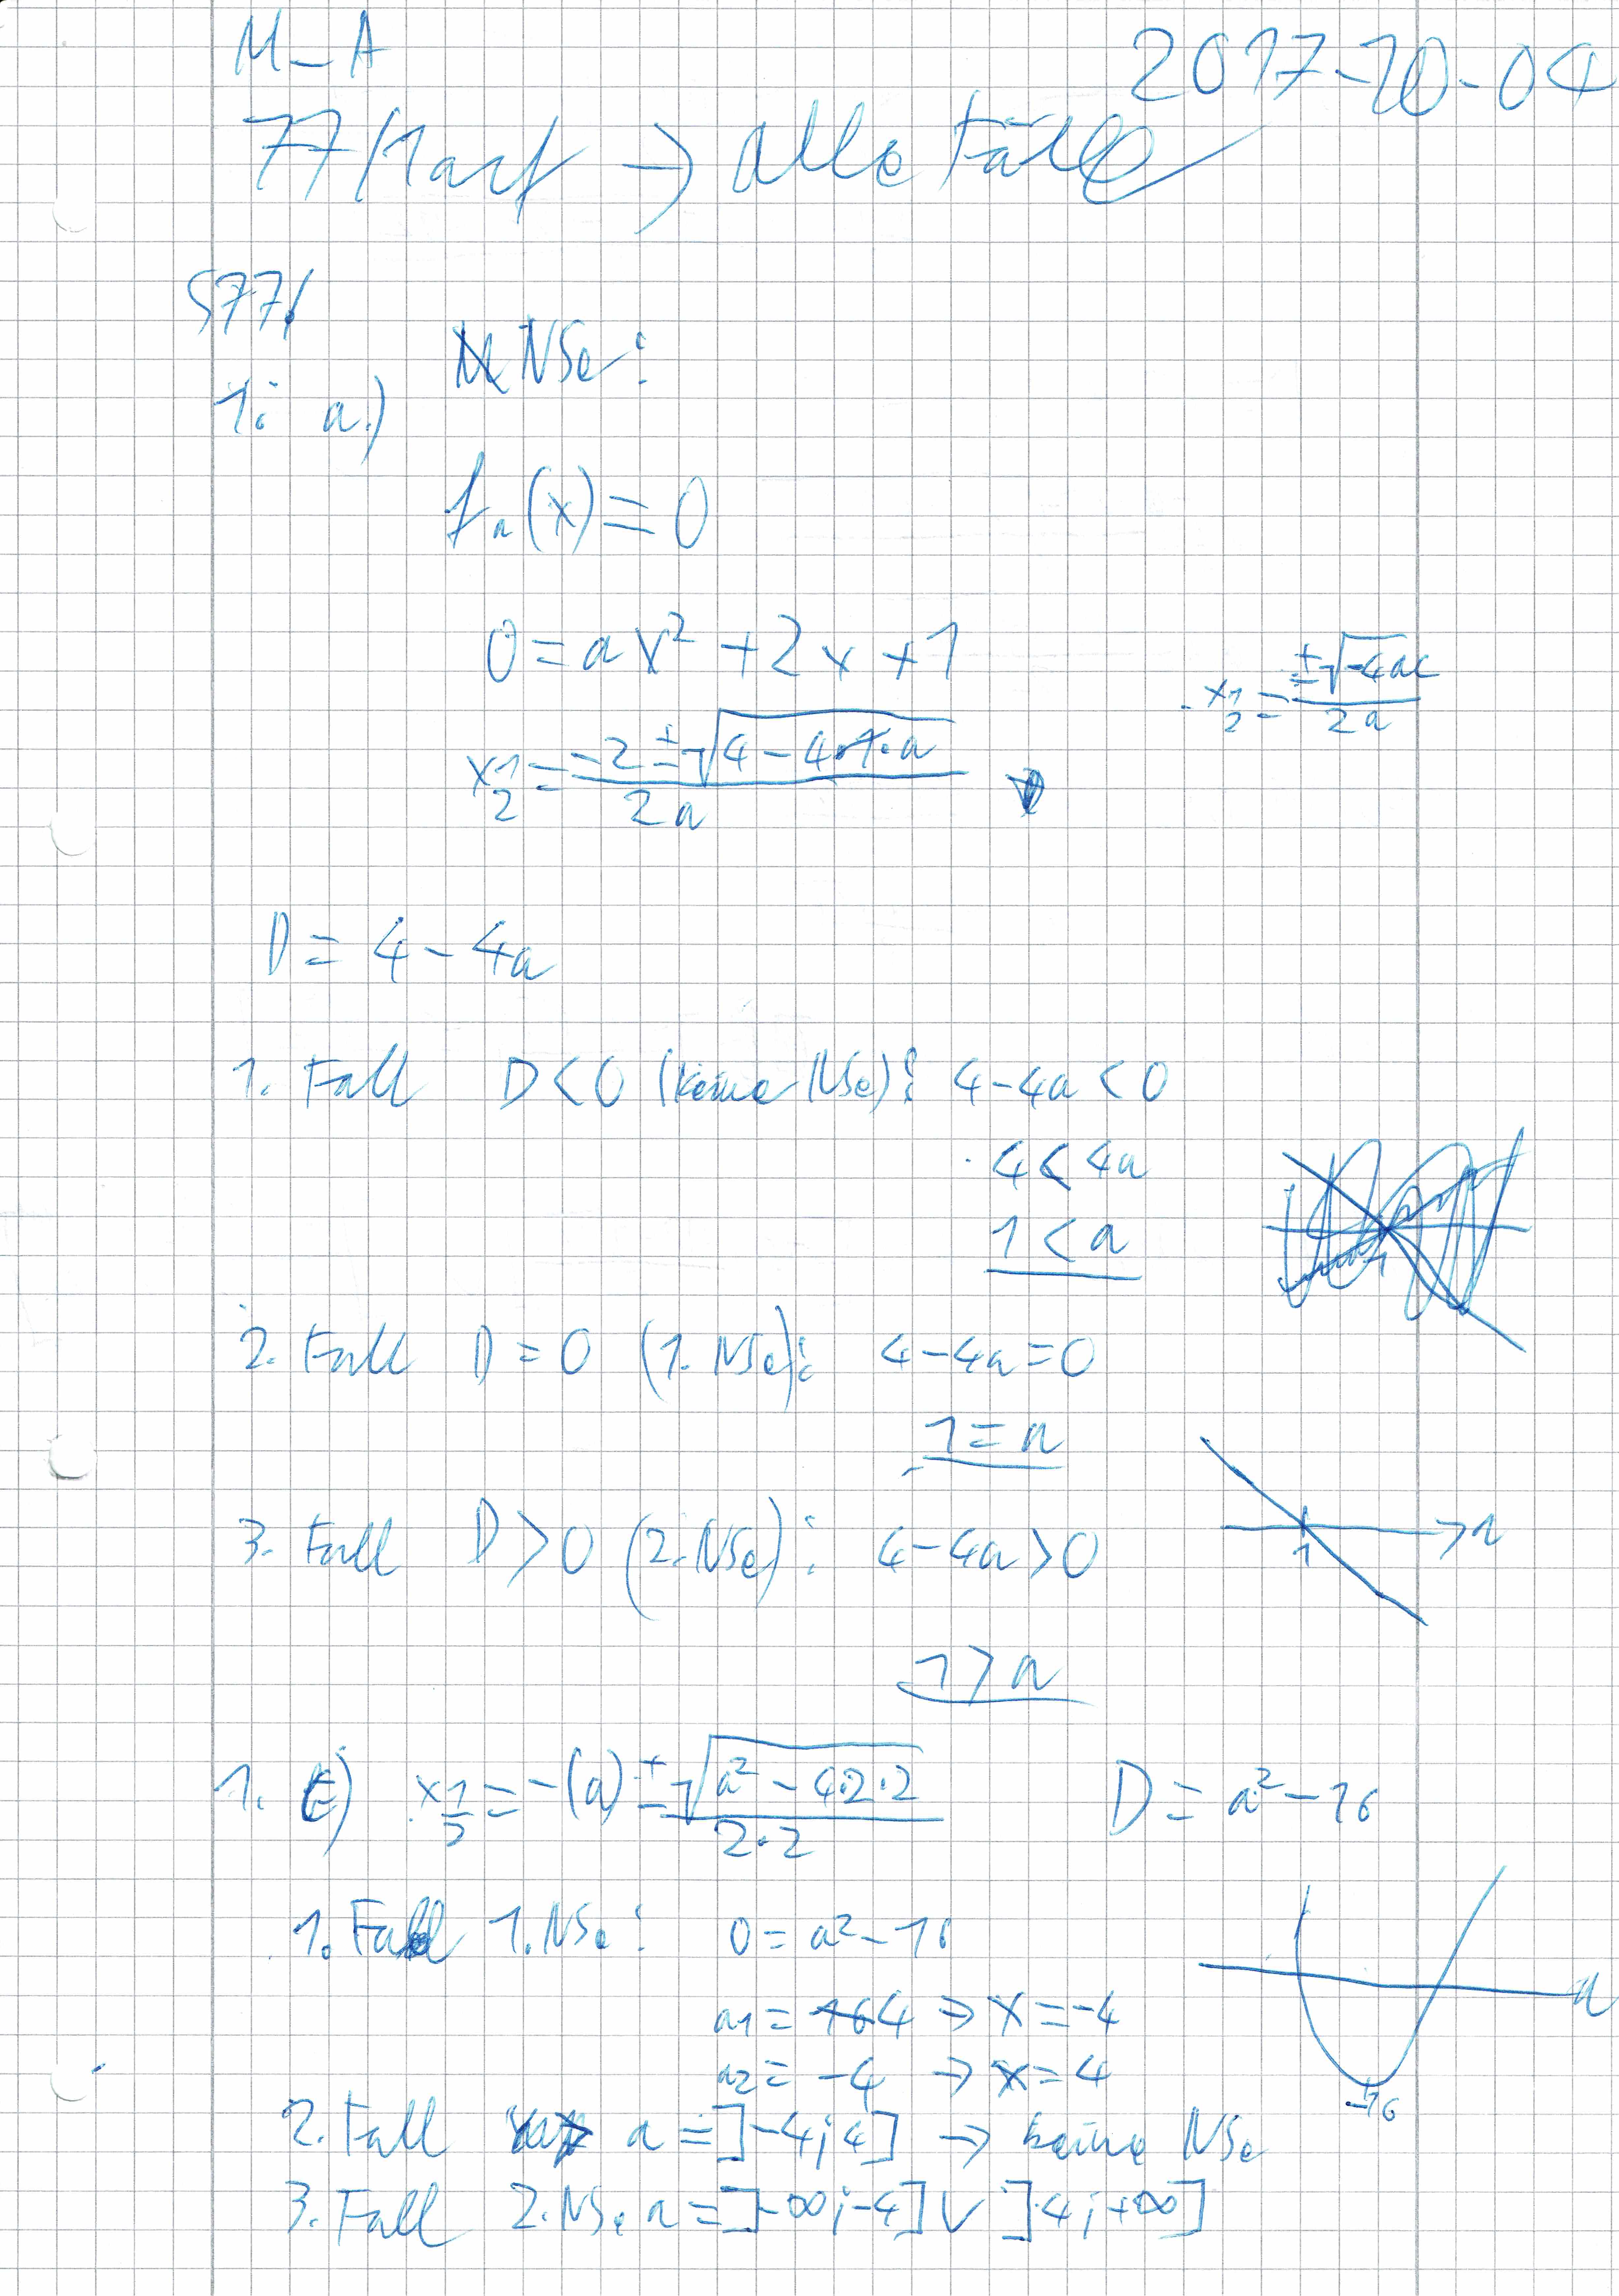 M_A 2017-10-04
77/1acf → alle Fälle
S77/
1: a.) NSe:
fa(x) = 0
0 = ax² + 2x + 1
x1/2 = (-2 ± √(4 - 4·1·a)) / 2a
x1/2 = (±√(-4ac)) / 2a
D = 4 - 4a
1. Fall D < 0 (keine NSe): 4 - 4a < 0
4 < 4a
1 < a
2. Fall D = 0 (1. NSe): 4 - 4a = 0
1 = a
3. Fall D > 0 (2. NSe): 4 - 4a > 0
→ a
1
1 > a
1. c) x1/2 = (-(a) ± √(a² - 4·2·2)) / 2·2 D = a² - 16
1. Fall 1. NSe: 0 = a² - 16
a1 = 4 → x = -4
a2 = -4 → x = 4
a
-16
2. Fall a = ]-4; 4] → keine NSe
3. Fall 2. NSe a = ]-∞; -4] V ]4; +∞]